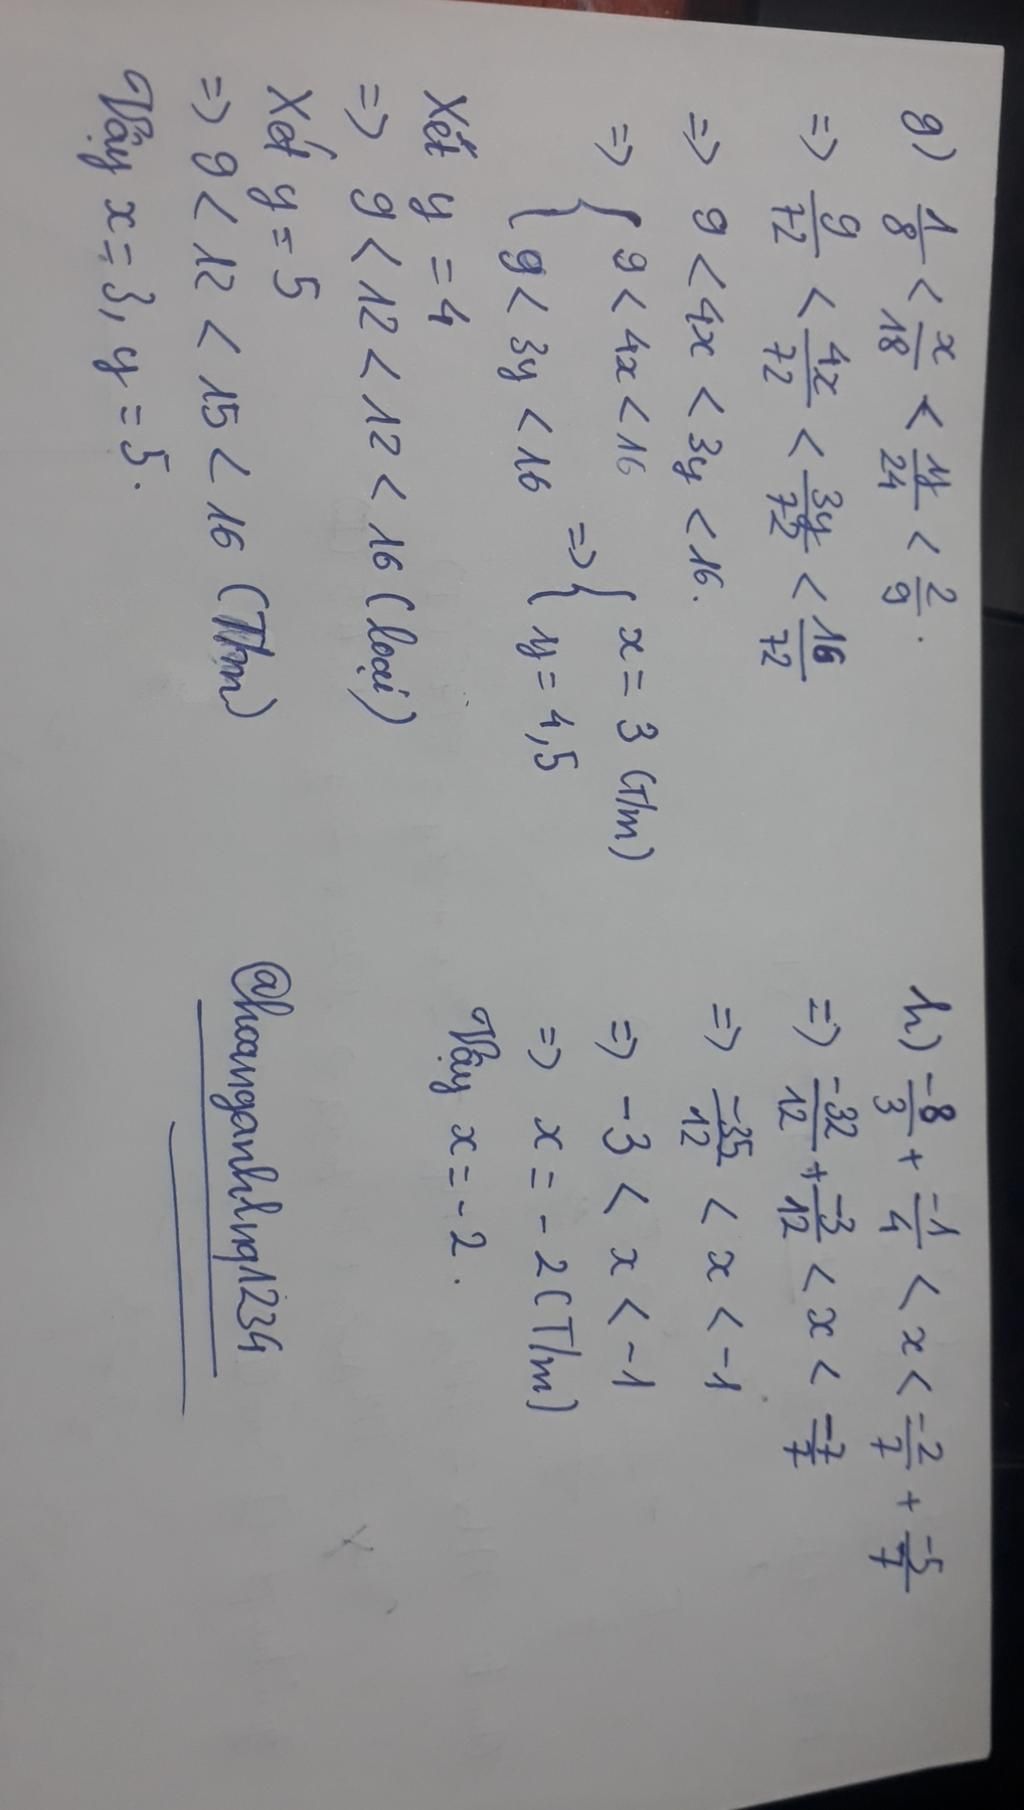 g) 1/8 < x/18 < y/24 < 2/9.
=> 9/72 < 4x/72 < 3y/72 < 16/72
=> 9 < 4x < 3y < 16.
=> { 9 < 4x < 16
{ 9 < 3y < 16
=> { x = 3 (T/m)
{ y = 4,5
Xét y = 4
=> 9 < 12 < 12 < 16 (loại)
Xét y = 5
=> 9 < 12 < 15 < 16 (T/m)
Vậy x = 3, y = 5.
h) -8/3 + -1/4 < x < -2/7 + -5/7
=> -32/12 + -3/12 < x < -7/7
=> -35/12 < x < -1
=> -3 < x < -1
=> x = -2 (T/m)
Vậy x = -2.
@hoanganhlnq1234